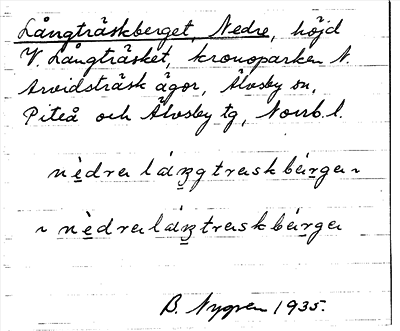 Långträskberget, Nedre, höjd
V. Långträsket, kronoparken N.
Arvidsträsk ägor, Älvsby sn,
Piteå och Älvsby tg, Norrb. l.
nèdra láŋgtraskbárga ~
~ nèdraláŋtraskbárga
B. Nygren 1935.